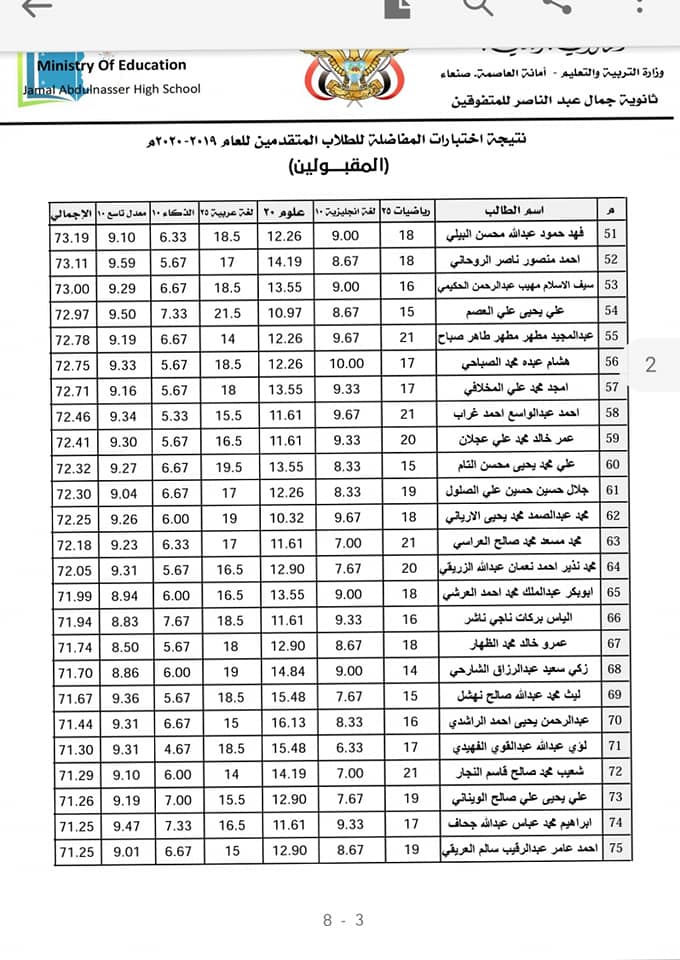 Ministry Of Education
Jamal Abdulnasser High School
وزارة التربية والتعليم - أمانة العاصمة- صنعاء
ثانوية جمال عبد الناصر للمتفوقين
نتيجة اختبارات المفاضلة للطلاب المتقدمين للعام ٢٠١٩-٢٠٢٠م
(المقبولين)
م اسم الطالب رياضيات ٢٥ لغة انجليزية ١٠ علوم ٢٠ لغة عربية ٢٥ الذكاء ١٠ معدل تاسع ١٠ الاجمالي
51 فهد حمود عبدالله محسن البيلي 18 9.00 12.26 18.5 6.33 9.10 73.19
52 احمد منصور ناصر الروحاني 18 8.67 14.19 17 5.67 9.59 73.11
53 سيف الاسلام مهيب عبدالرحمن الحكيمي 16 9.00 13.55 18.5 6.67 9.29 73.00
54 علي يحيى علي العصم 15 8.67 10.97 21.5 7.33 9.50 72.97
55 عبدالمجيد مطهر مطهر طاهر صباح 21 9.67 12.26 14 6.67 9.19 72.78
56 هشام عبده محمد الصباحي 17 10.00 12.26 18.5 5.67 9.33 72.75
57 امجد محمد علي المخلافي 17 9.33 13.55 18 5.67 9.16 72.71
58 احمد عبدالواسع احمد غراب 21 9.67 11.61 15.5 5.33 9.34 72.46
59 عمر خالد محمد علي عجلان 20 9.33 11.61 16.5 5.67 9.30 72.41
60 علي محمد يحيى محسن التام 15 8.33 13.55 19.5 6.67 9.27 72.32
61 جلال حسين حسين علي الصلول 19 8.33 12.26 17 6.67 9.04 72.30
62 محمد عبدالصمد محمد يحيى الارياني 18 9.67 10.32 19 6.00 9.26 72.25
63 محمد مسعد محمد صالح العراسي 21 7.00 11.61 17 6.33 9.23 72.18
64 محمد نذير احمد نعمان عبدالله الزريقي 20 7.67 12.90 16.5 5.67 9.31 72.05
65 ابوبكر عبدالملك محمد احمد العرشي 18 9.00 13.55 16.5 6.00 8.94 71.99
66 الياس بركات ناجي ناشر 16 9.33 11.61 18.5 7.67 8.83 71.94
67 عمرو خالد محمد الظهار 18 8.67 12.90 18 5.67 8.50 71.74
68 زكي سعيد عبدالرزاق الشارحي 14 9.00 14.84 19 6.00 8.86 71.70
69 ليث محمد عبدالله صالح نهشل 15 7.67 15.48 18.5 5.67 9.36 71.67
70 عبدالرحمن يحيى احمد الراشدي 16 8.33 16.13 15 6.67 9.31 71.44
71 لؤي عبدالله عبدالقوي الفهيدي 17 6.33 15.48 18.5 4.67 9.31 71.30
72 شعيب محمد صالح قاسم النجار 21 7.00 14.19 14 6.00 9.10 71.29
73 علي يحيى علي صالح الويناني 19 7.67 12.90 15.5 7.00 9.19 71.26
74 ابراهيم محمد عباس عبدالله جحاف 17 9.33 11.61 16.5 7.33 9.47 71.25
75 احمد عامر عبدالرقيب سالم العريقي 19 8.67 12.90 15 6.67 9.01 71.25
2
8 - 3